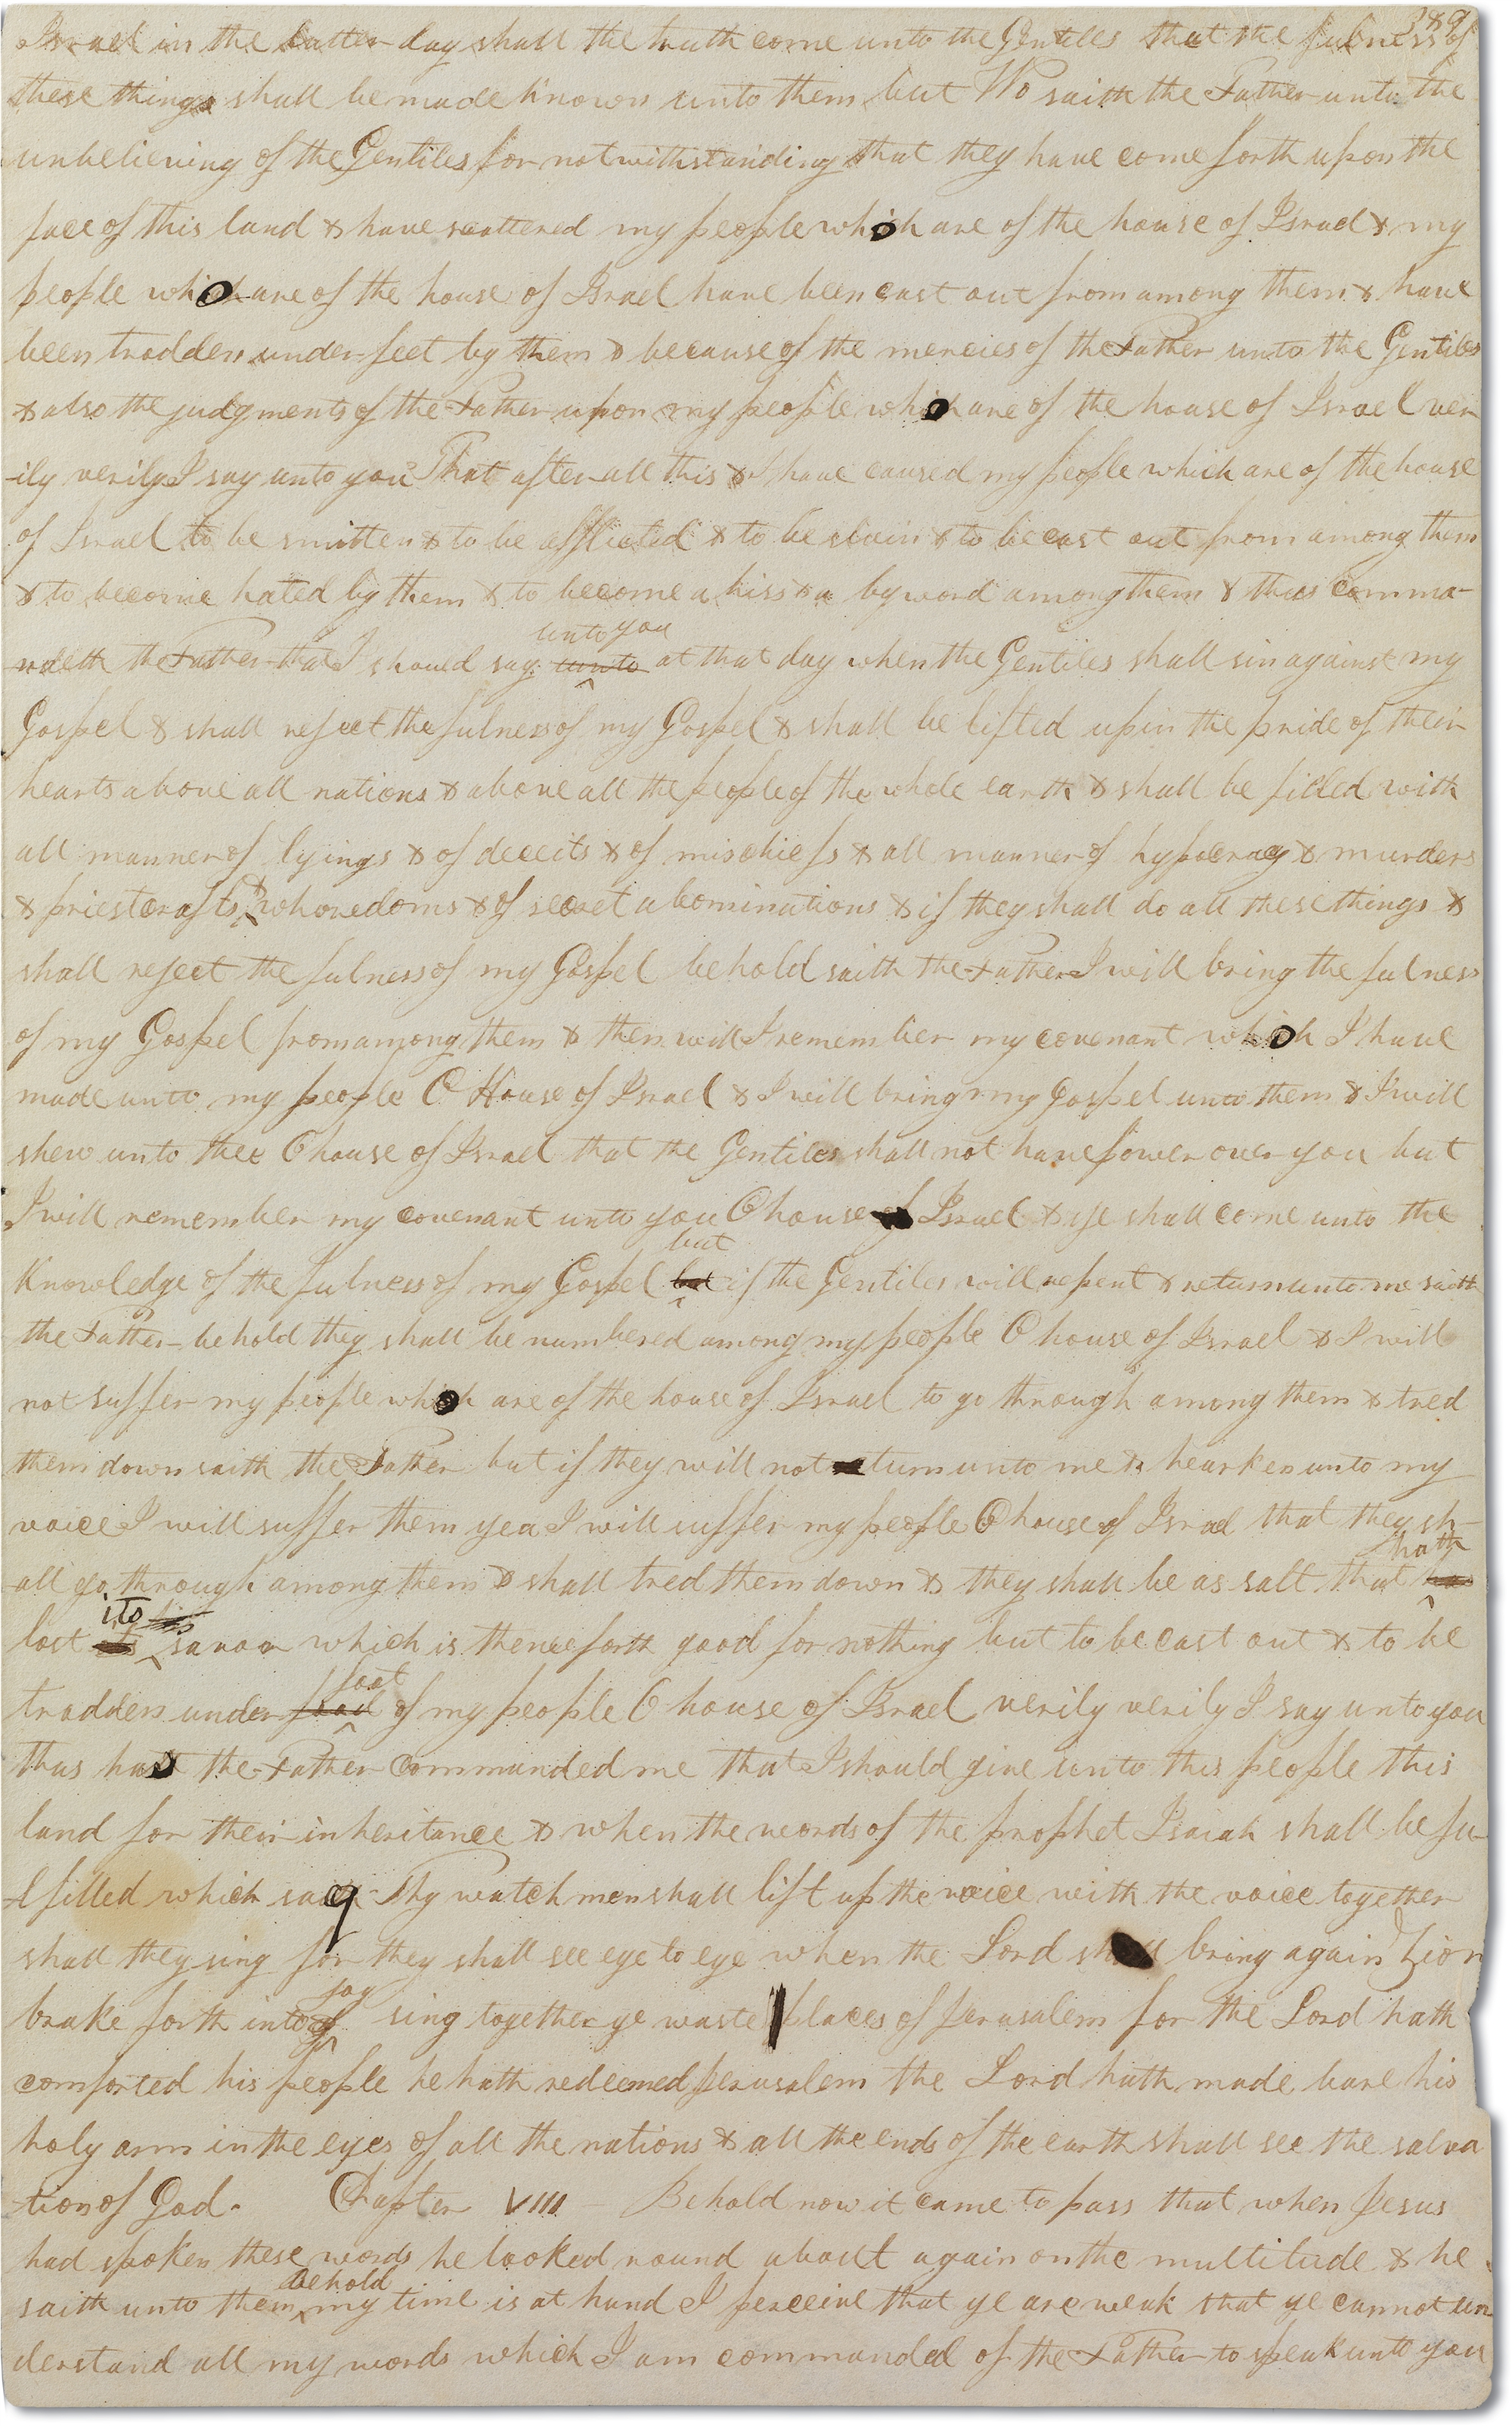 389
Israel in the latter day shall the truth come unto the Gentiles that the fulness of
these things shall be made known unto them but Wo saith the Father unto the
unbelieving of the Gentiles for notwithstanding that they have come forth upon the
face of this land & have scattered my people which are of the house of Israel & my
people which are of the house of Israel have been cast out from among them & have
been trodden under feet by them & because of the mercies of the Father unto the Gentiles
& also the judgments of the Father upon my people which are of the house of Israel ver
-ily verily I say unto you That after all this & I have caused my people which are of the house
of Israel to be smitten & to be afflicted & to be slain & to be cast out from among them
& to become hated by them & to become a hiss & a by word among them & thus comma-
unto you
ndeth the Father that I should say unto at that day when the Gentiles shall sin against my
Gospel & shall reject the fulness of my Gospel & shall be lifted up in the pride of their
hearts above all nations & above all the people of the whole earth & shall be filled with
all manner of lyings & of deceits & of mischiefs & all manner of hypocracy & murders
& priestcrafts & whoredoms & of secret abominations & if they shall do all these things &
shall reject the fulness of my Gospel behold saith the Father I will bring the fulness
of my Gospel from among them & then will I remember my covenant which I have
made unto my people O House of Israel & I will bring my Gospel unto them & I will
shew unto thee O house of Israel that the Gentiles shall not have power over you but
I will remember my covenant unto you O house of Israel & ye shall come unto the
but
Knowledge of the fulness of my Gospel but if the Gentiles will repent & return unto me saith
the Father behold they shall be numbered among my people O house of Israel & I will
not suffer my people which are of the house of Israel to go through among them & tred
them down saith the Father but if they will not turn unto me & hearken unto my
voice I will suffer them yea I will suffer my people O house of Israel that they sh-
hath
all go through among them & shall tred them down & they shall be as salt that has
its his
lost savor which is thenceforth good for nothing but to be cast out & to be
foot
trodden under of my people O house of Israel verily verily I say unto you
thus hath the Father commanded me that I should give unto this people this
land for their inheritance & when the words of the prophet Isaiah shall be fu-
lfilled which say Thy watchmen shall lift up the voice with the voice together
shall they sing for they shall see eye to eye when the Lord shall bring again Zion
joy
brake forth into sing together ye waste places of Jerusalem for the Lord hath
comforted his people he hath redeemed Jerusalem the Lord hath made bare his
holy arm in the eyes of all the nations & all the ends of the earth shall see the salva
tion of God. Chapter VIII Behold now it came to pass that when Jesus
had spoken these words he looked round about again on the multitude & he
Behold
saith unto them my time is at hand I perceive that ye are weak that ye cannot un
derstand all my words which I am commanded of the Father to speak unto you